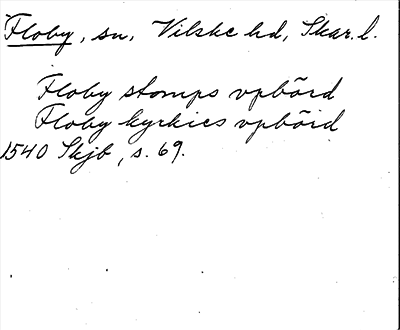 Floby, sn, Vilske hd, Skar. l.
Floby stomps vpbörd
Floby kyrkies vpbörd
1540 Skjb, s. 69.